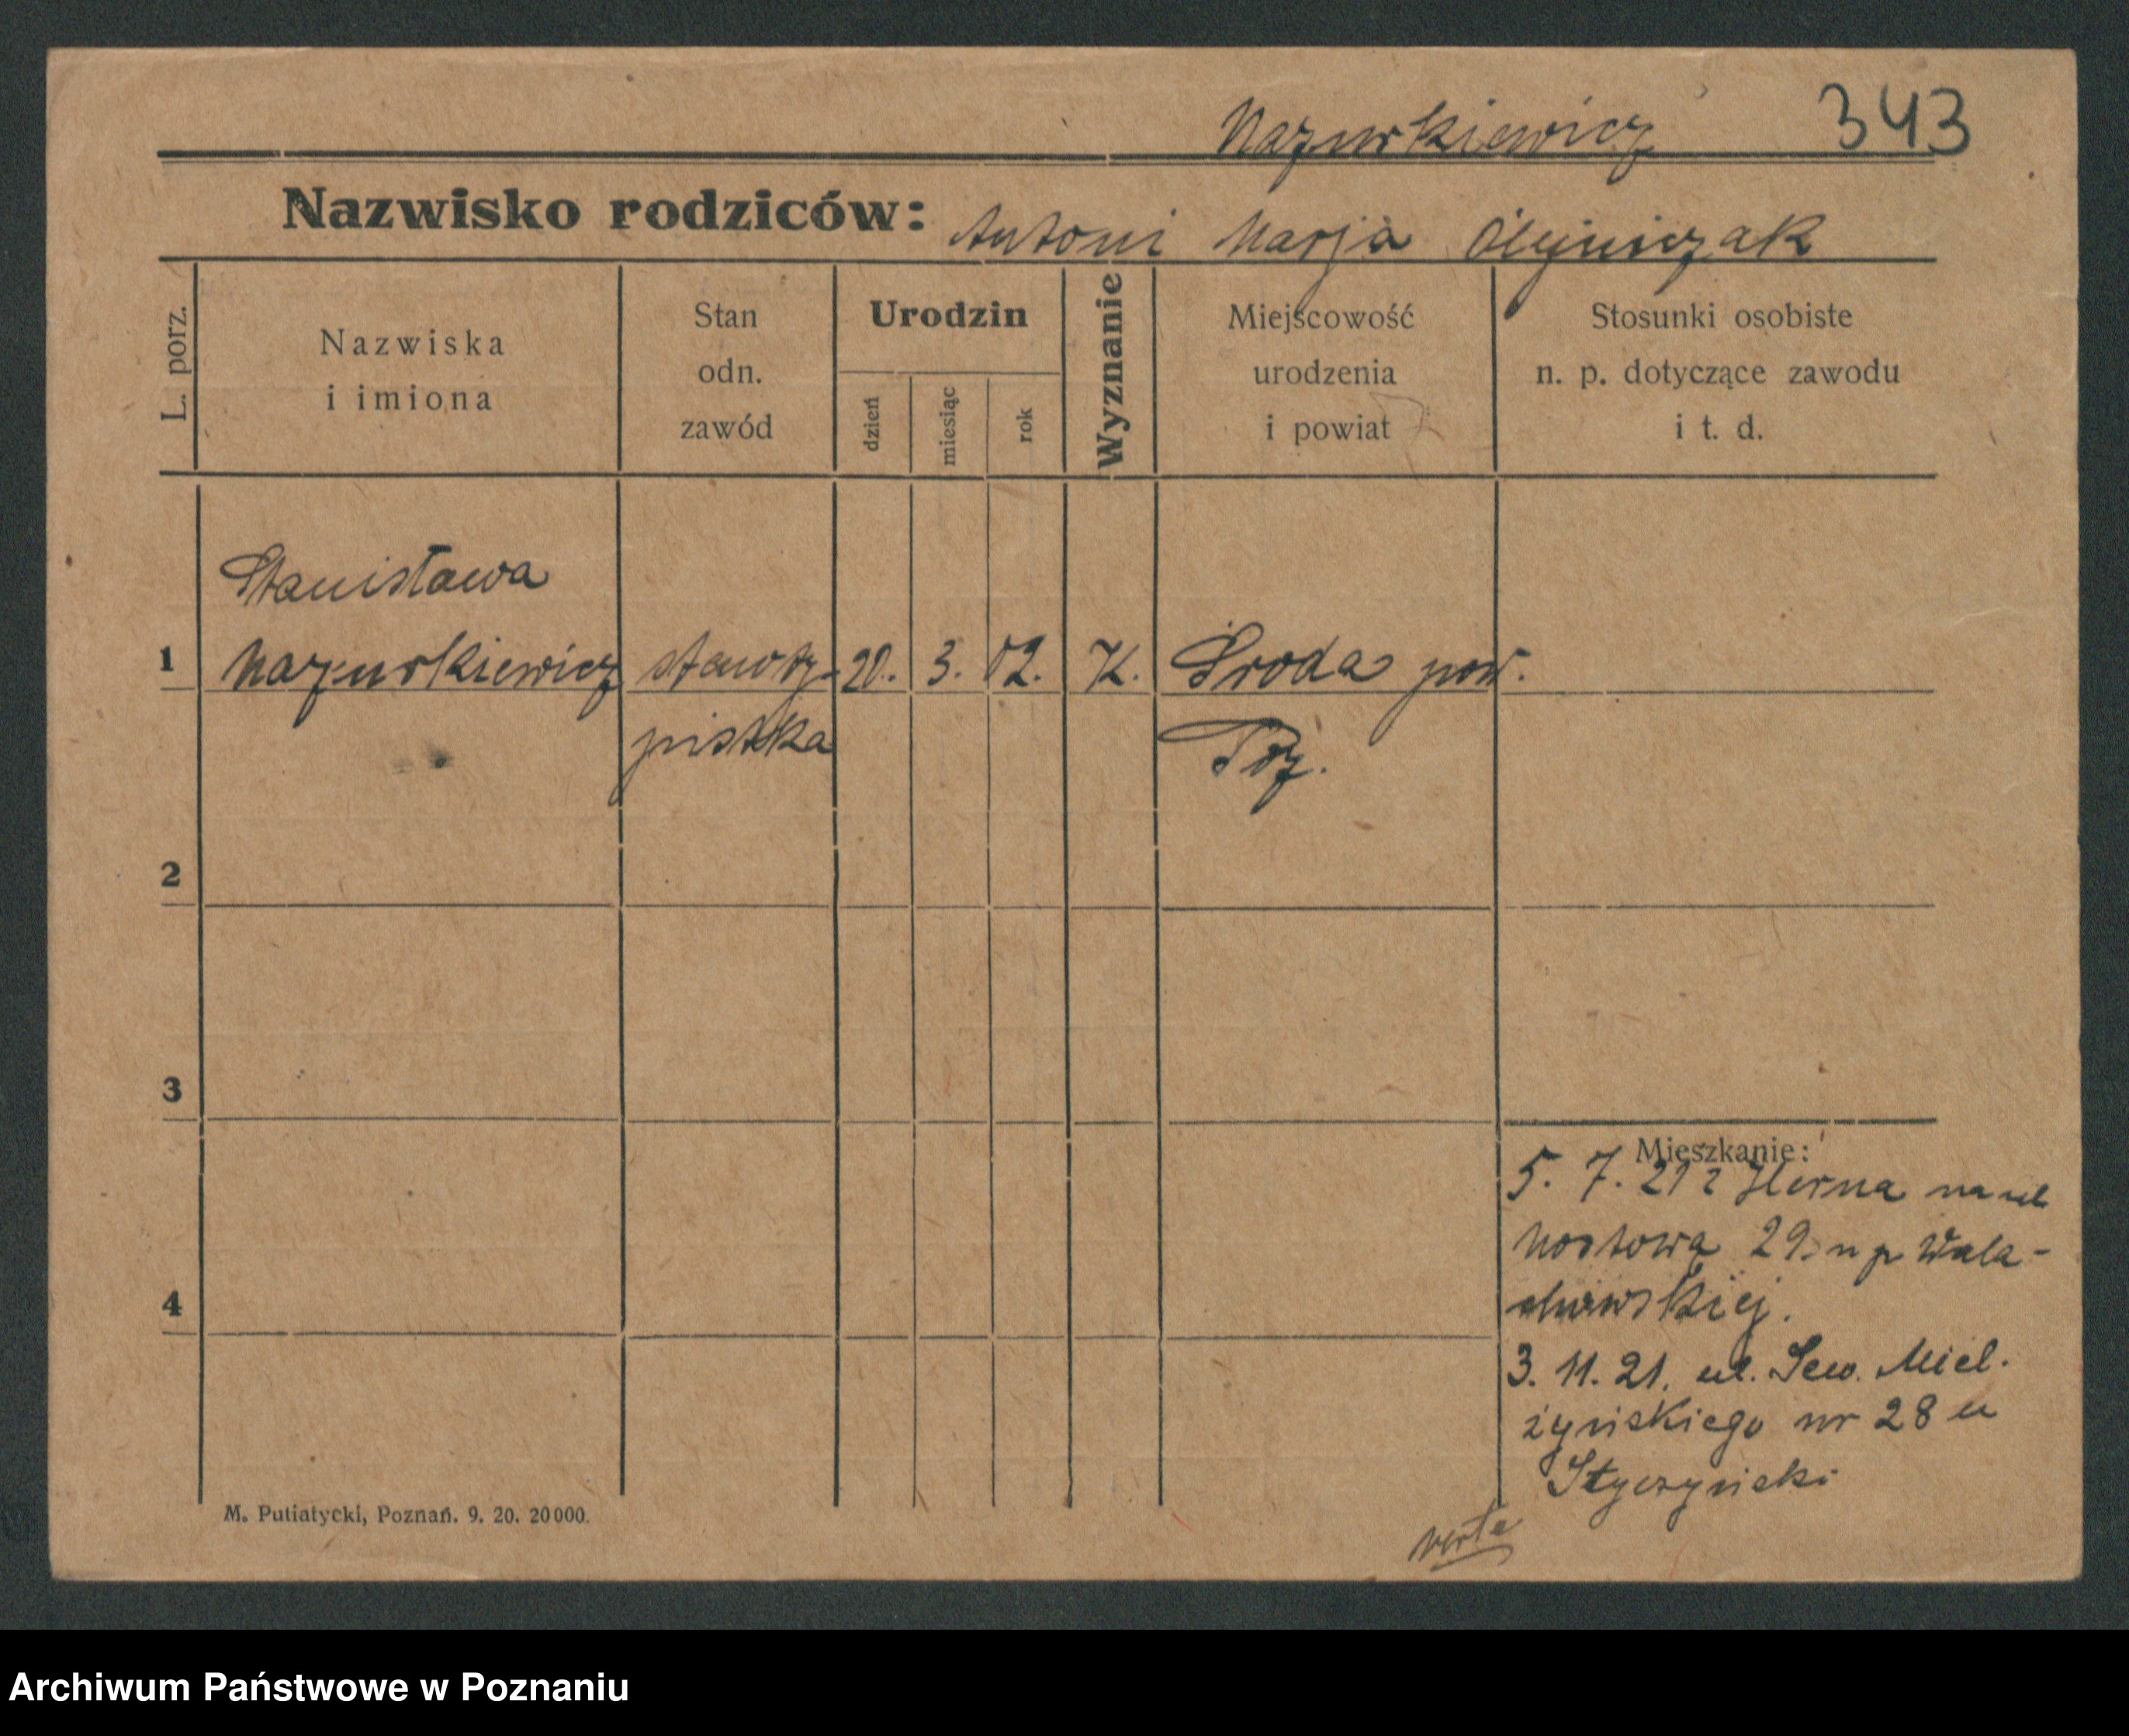 Mazurkiewicz 343
Nazwisko rodziców: Antoni Marja Olejniczak
L. porz.
Nazwiska
i imiona
Stan
odn.
zawód
Urodzin
dzień
miesiąc
rok
Wyznanie
Miejscowość
urodzenia
i powiat
Stosunki osobiste
n. p. dotyczące zawodu
i t. d.
Stanisława
1 Mazurkiewicz stenoty- 20. 3. 02. K. Środa pow.
pistka Poz.
2
3
Mieszkanie:
5. 7. 21 z Herna na ul
Mostową 29. u p Wala-
4
chowskiej.
3. 11. 21. ul. Sew. Miel.
żyńskiego nr 28 u
Styczyński
M. Putiatycki, Poznań. 9. 20. 20 000.
verte
Archiwum Państwowe w Poznaniu